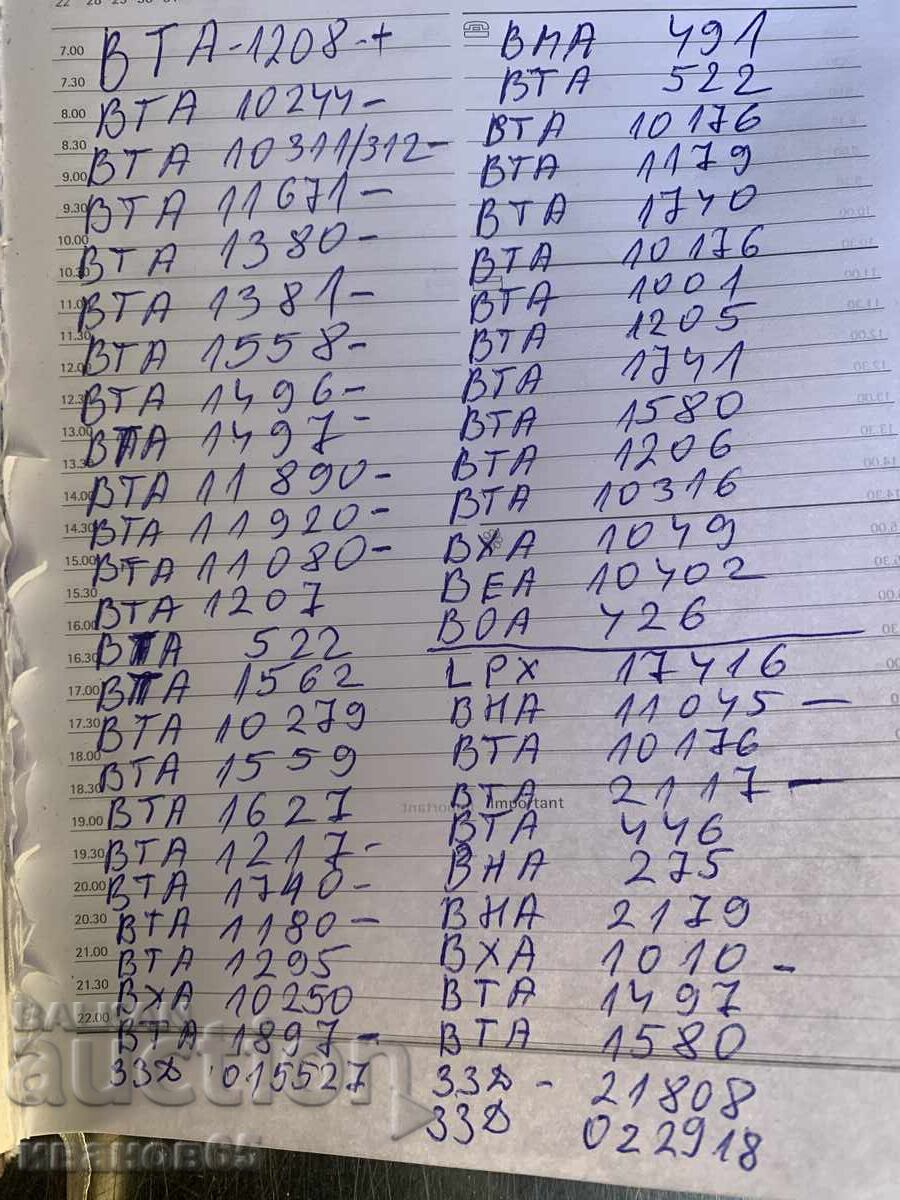 7.00 ВТА-1208-+
7.30
8.00 ВТА 10244-
8.30 ВТА 10311/312-
9.00
9.30 ВТА 11671-
10.00 ВТА 1380-
10.30
11.00 ВТА 1381-
11.30 ВТА 1558-
12.00
12.30 ВТА 1496-
13.00 ВТА 1497-
13.30
14.00 ВТА 11890-
14.30 ВТА 11920-
15.00 ВТА 11080-
15.30 ВТА 1207
16.00
16.30 ВТА 522
17.00 ВТА 1562
17.30 ВТА 10279
18.00
18.30 ВТА 1559
19.00 ВТА 1627
19.30 ВТА 1217-
20.00 ВТА 1740-
20.30 ВТА 1180-
21.00 ВТА 1295
21.30 ВХА 10250
22.00 ВТА 1897-
ЗЗД 015527
ВНА 491
ВТА 522
ВТА 10176
ВТА 1179
ВТА 1740
ВТА 10176
ВТА 1001
ВТА 1205
ВТА 1741
ВТА 1580
ВТА 1206
ВТА 10316
ВХА 1049
ВЕА 10402
ВОА 426
LPX 17416
ВНА 11045 -
ВТА 10176
ВТА 2117 -
Important
ВТА 446
ВНА 275
ВНА 2179
ВХА 1010 -
ВТА 1497
ВТА 1580
ЗЗД - 21808
ЗЗД 022918
auction
иванов65